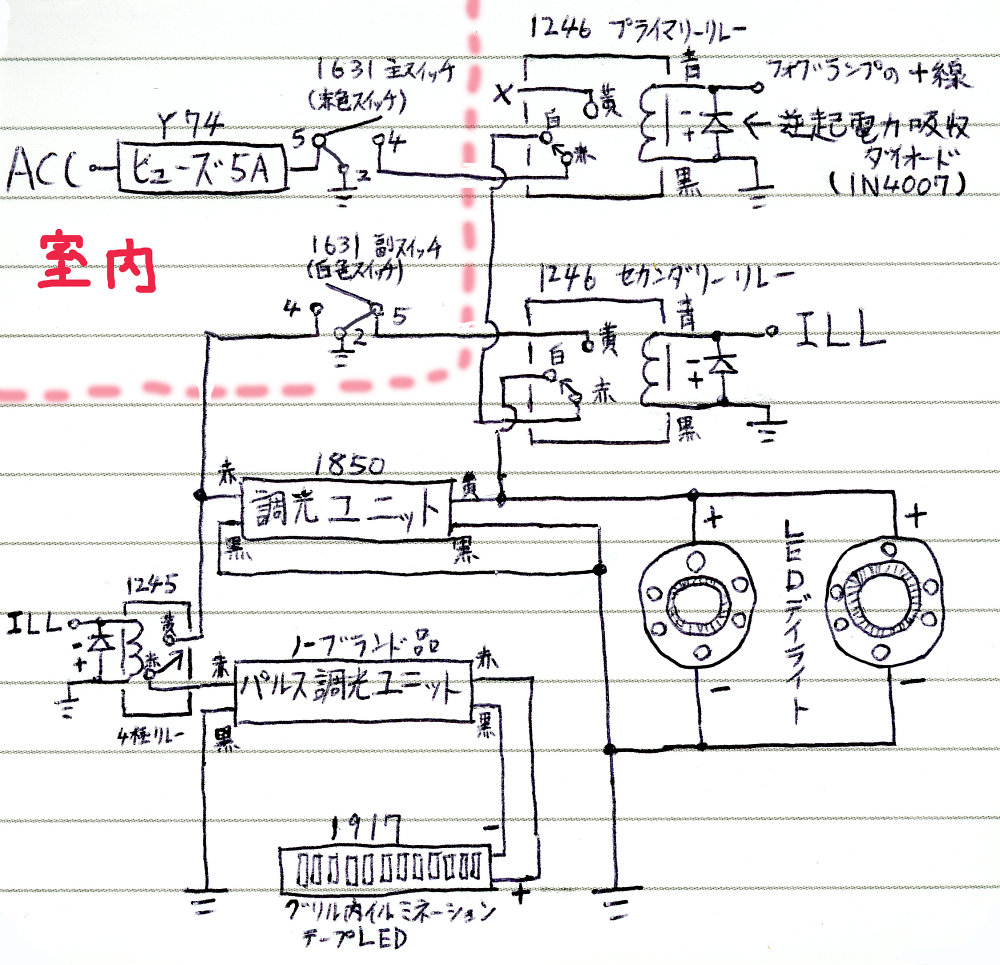 1246 プライマリーリレー
青
フォグランプの+線
1631 主スイッチ
(赤色スイッチ)
×
黄
Y74
5
4
白
-
+
←逆起電力吸収
ダイオード
(1N4007)
ACC
ヒューズ5A
2
赤
黒
室内
1631 副スイッチ
(白色スイッチ)
1246 セカンダリーリレー
4
5
青
2
黄
ILL
白
-
+
赤
黒
1850
赤
調光ユニット
黄
黒
黒
+
+
LEDデイライト
1245
ILL
黄
-
+
赤
ノーブランド品
赤
パルス調光ユニット
赤
-
-
4極リレー
黒
黒
1917
-
+
グリル内イルミネーション
テープLED